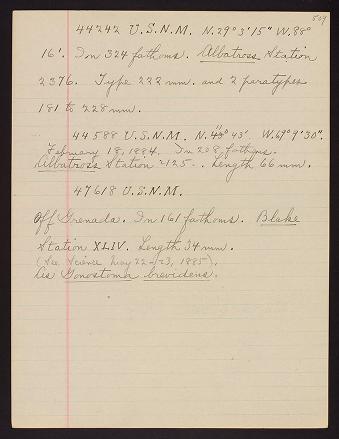 509
44242 U.S.N.M. N. 29° 3' 15" W. 88°
16'. In 324 fathoms. Albatross Station
2376. Type 222 mm. and 2 paratypes
181 to 228 mm.
44588 U.S.N.M. N. 43' W. 69° 9' 30".
February 18, 1884. In 208 fathoms.
Albatross Station 2125. Length 66 mm.
47618 U.S.N.M.
Off Grenada. In 161 fathoms. Blake
Station XLIV. Length 34 mm.
(See Science May 22-23, 1885).
As Gonostoma brevidens.